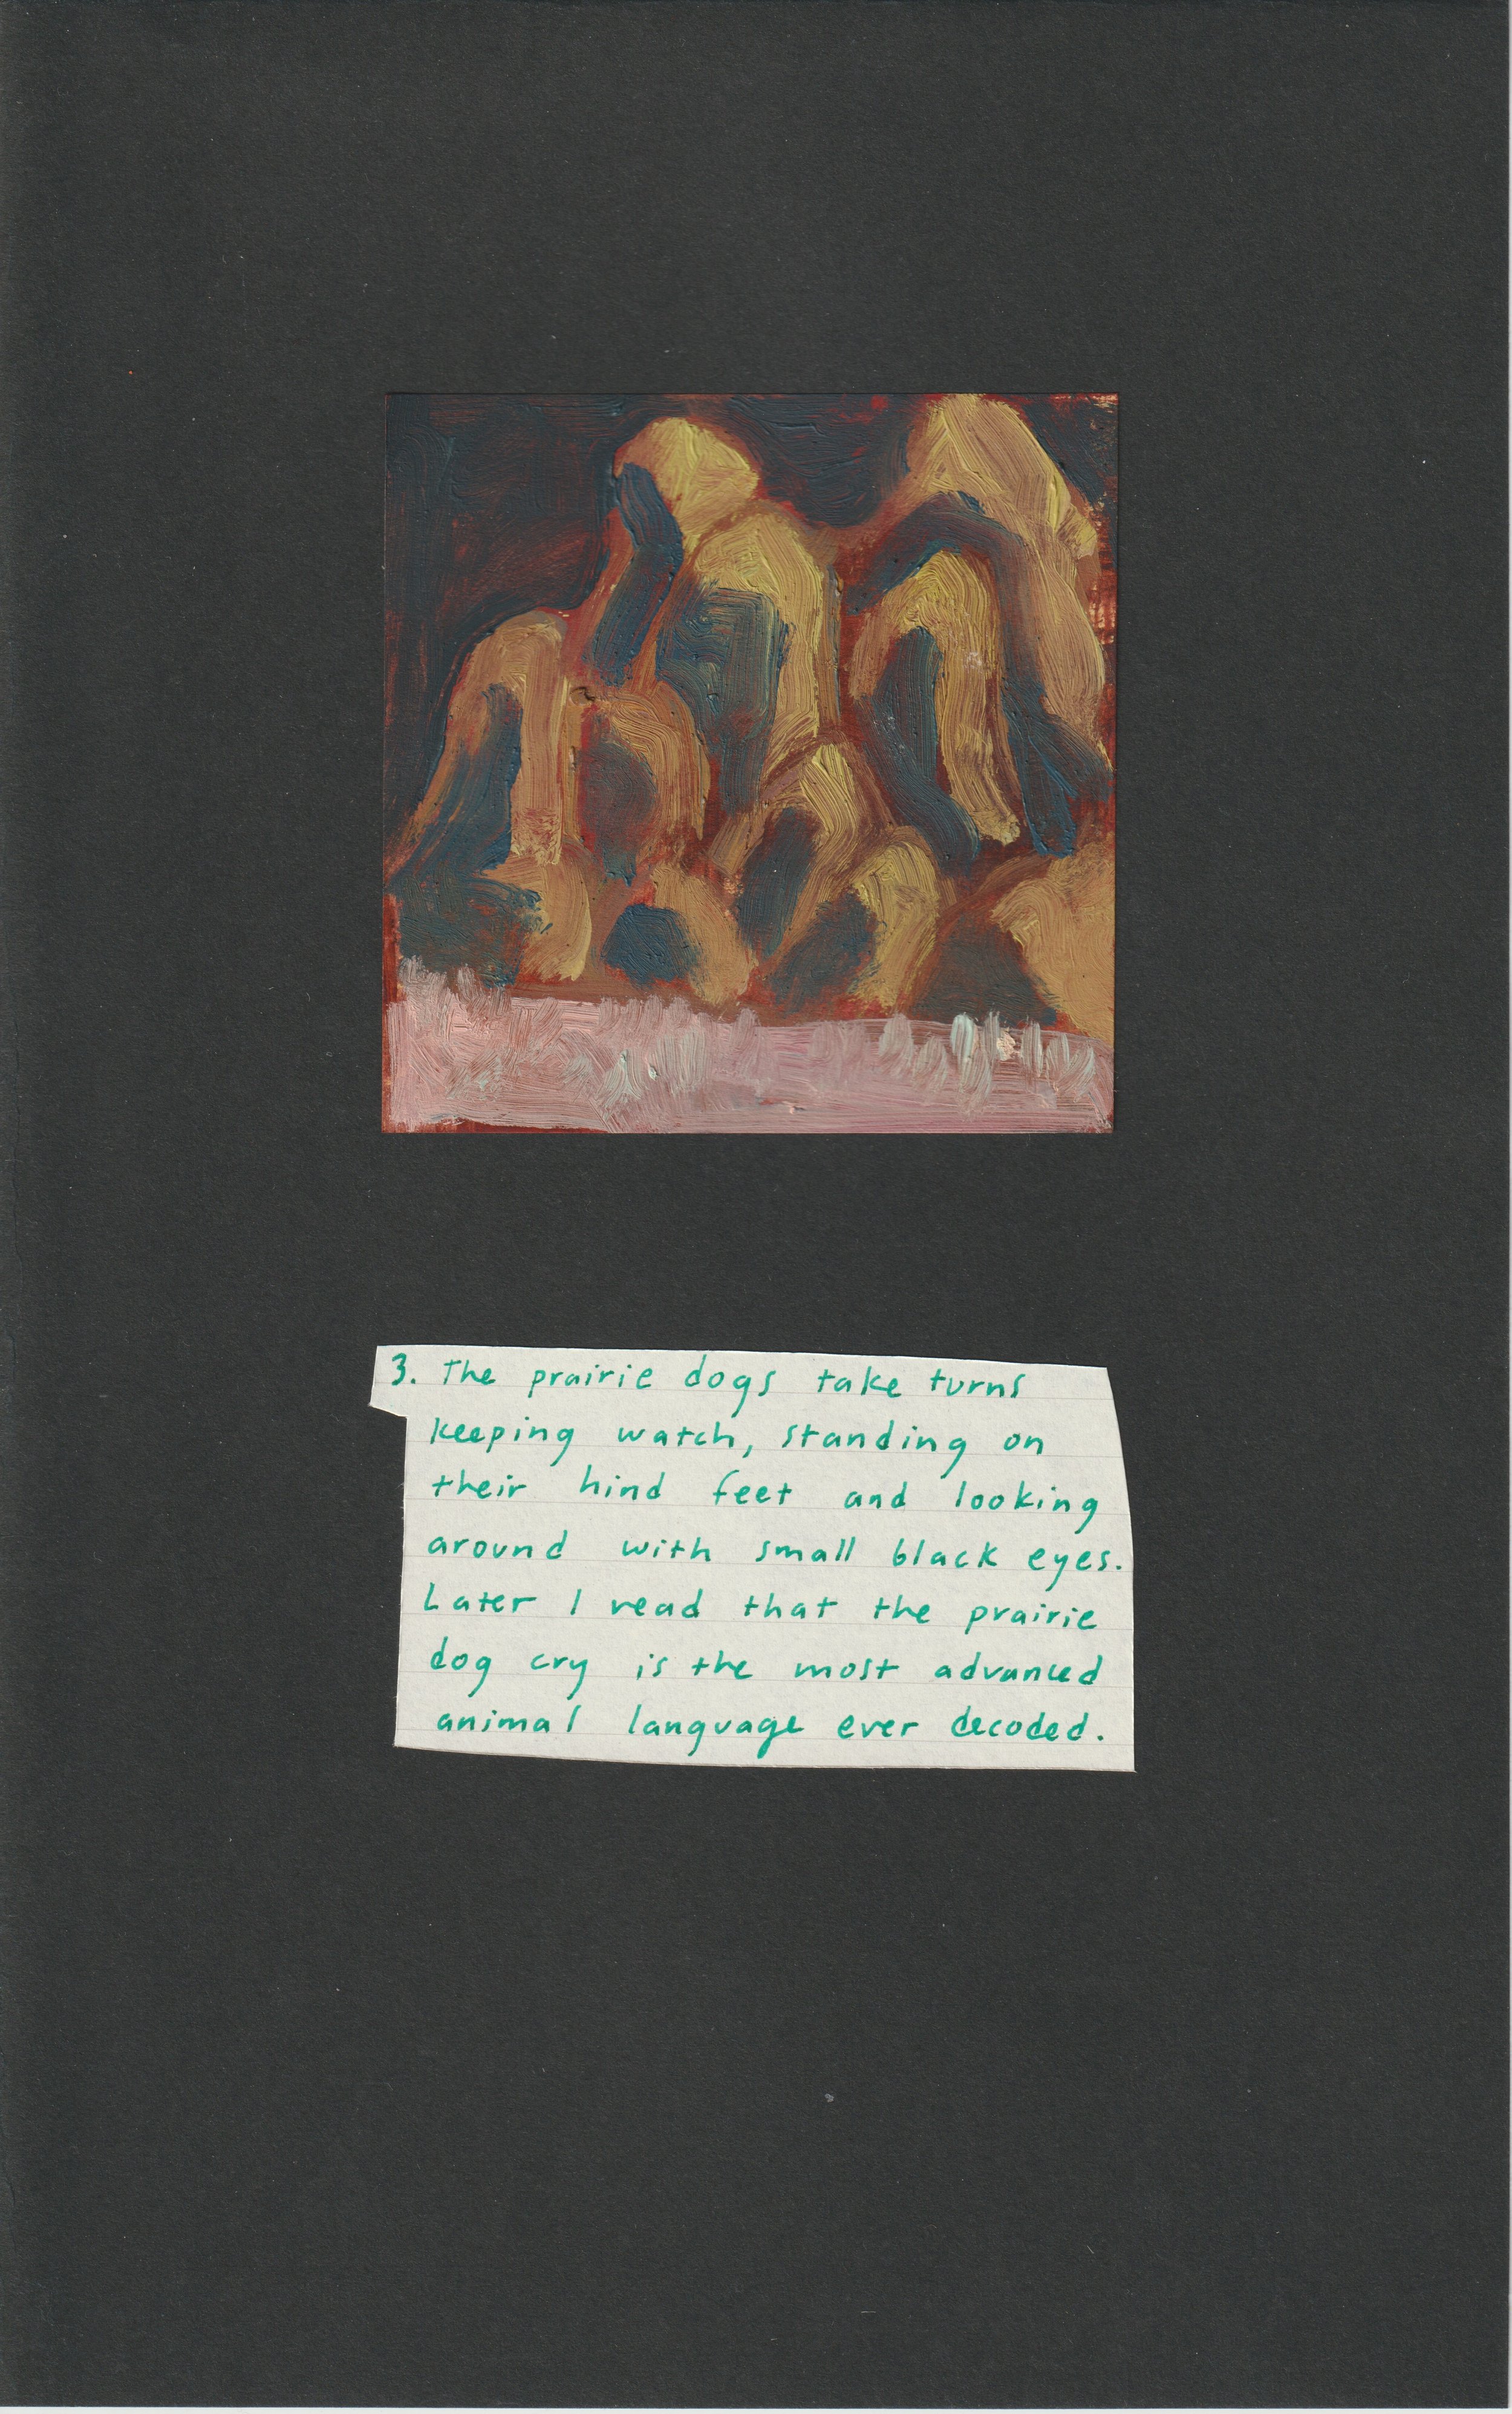 3. The prairie dogs take turns
keeping watch, standing on
their hind feet and looking
around with small black eyes.
Later I read that the prairie
dog cry is the most advanced
animal language ever decoded.